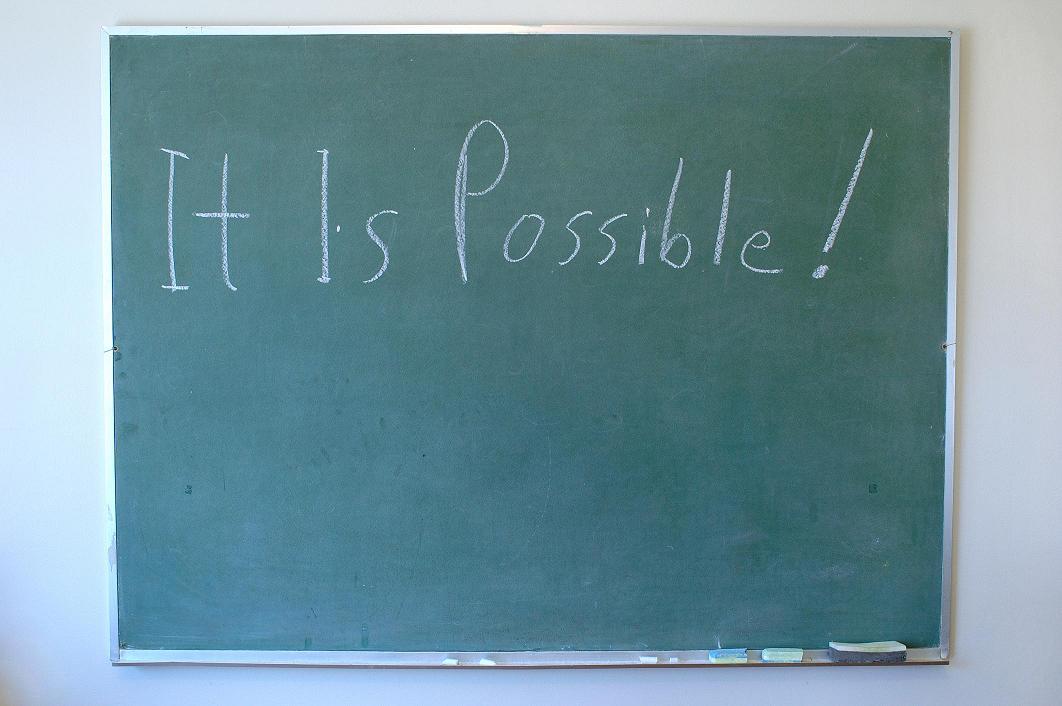 It Is Possible!